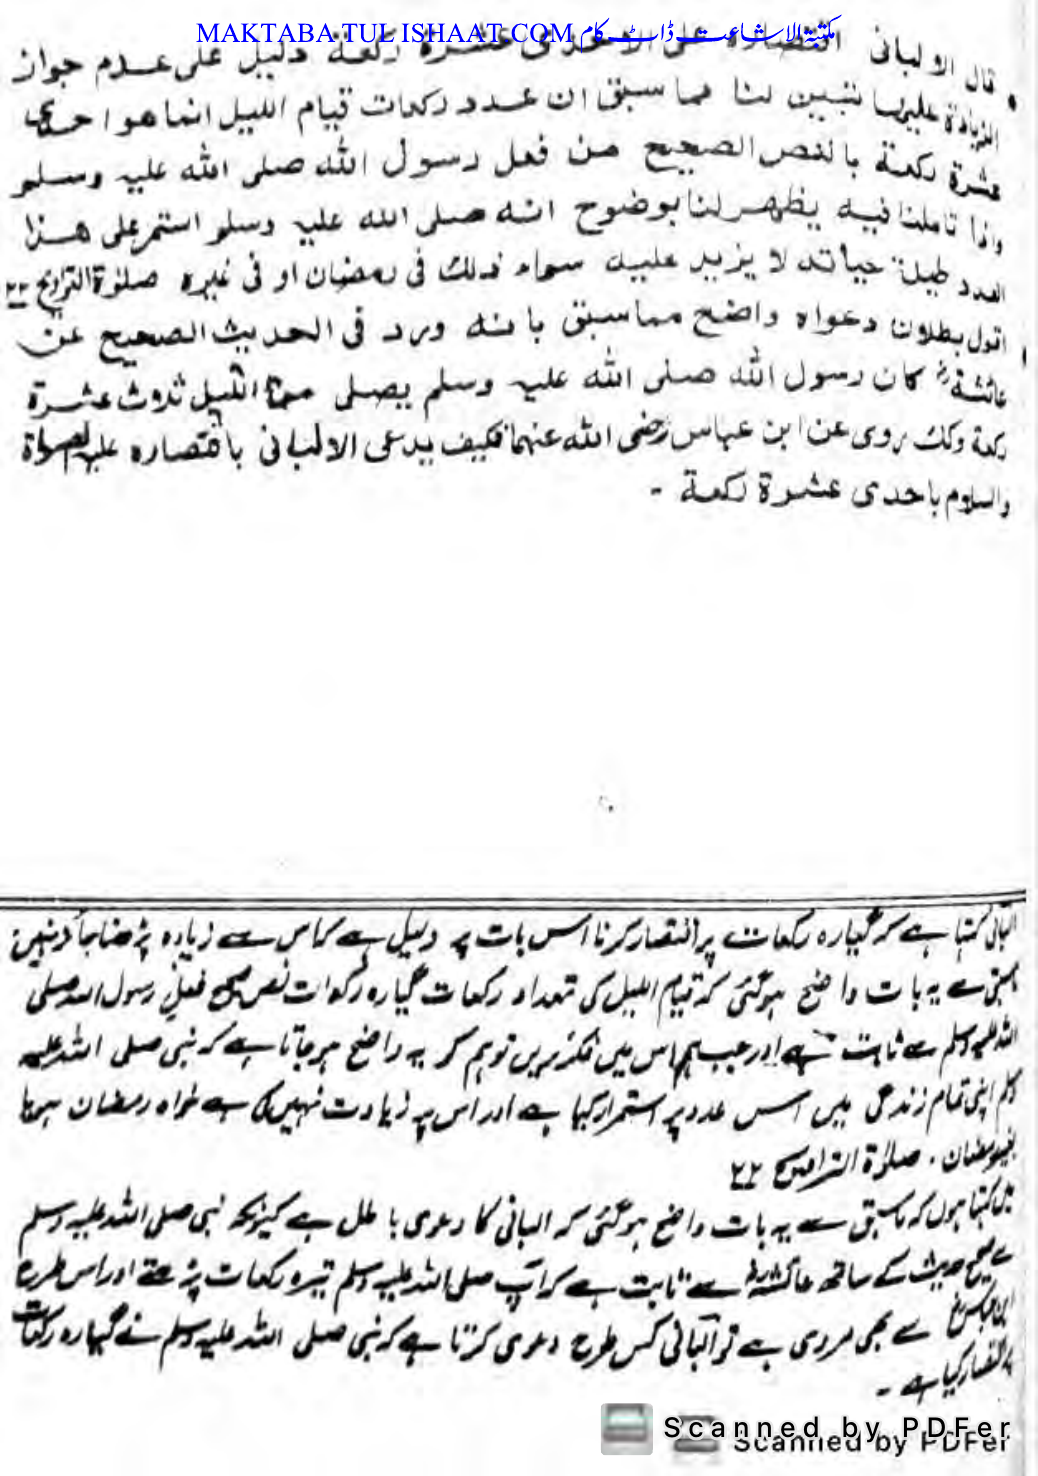 MAKTABA TUL ISHAAT COM مکتبۃ الاشاعت ڈاٹ کام
قال الالبانی اقتصاره على الاحدى عشرة ركعة دليل على عدم جواز
الزيادة عليها تتبين لنا مما سبق ان عدد ركعات قيام الليل انما هو احدى
عشرة ركعة بالنص الصحيح من فعل رسول الله صلى الله عليه وسلم
واذا تاملنا فيه يظهر لنا بوضوح انه صلى الله عليه وسلم استمر على هذا
العدد طيلة حياته لا يزيد عليه سواء ذلك فى رمضان او فى غيره صلوٰة التراويح ٢٢
اقول بطلان دعواه واضح مما سبق بانه ورد فى الحديث الصحيح عن
عائشةؓ كان رسول الله صلى الله عليه وسلم يصلى من الليل ثلاث عشرة
ركعة وكذ روى عن ابن عباس رضى الله عنهما فكيف يدعى الالبانى باقتصاره عليه الصلاة
والسلام باحدى عشرة ركعة -
البانی کہتا ہے کہ گیارہ رکعات پر اقتصار کرنا اس بات پر دلیل ہے کہ اس سے زیادہ پڑھنا جائز نہیں
سے یہ بات واضح ہوگئی کہ قیام اللیل کی تعداد رکعات گیارہ رکوات نص صحیح فعل رسول اللہ صلی
اللہ علیہ وسلم سے ثابت ہے اور جب ہم اس میں فکر کریں تو ہم کو یہ واضح ہو جاتا ہے کہ نبی صلی اللہ علیہ
وسلم اپنی تمام زندگی میں اس عدد پر استمرار کیا ہے اور اس پہ زیادت نہیں کی ہے خواہ رمضان ہو یا
غیر رمضان ۔ صلوٰة التراویح ٢٢
میں کہتا ہوں کہ ماسبق سے یہ بات واضح ہوگئی کہ البانی کا دعوی باطل ہے کیونکہ نبی صلی اللہ علیہ وسلم
سے صحیح حدیث کے ساتھ عائشہؓ سے ثابت ہے کہ آپ صلی اللہ علیہ وسلم تیرہ رکعات پڑھتے اور اس طرح
ابن عباسؓ سے بھی مروی ہے تو البانی کس طرح دعوی کرتا ہے کہ نبی صلی اللہ علیہ وسلم نے گیارہ رکعات
پر اقتصار کیا ہے -
Scanned by PDFer
Scanned by PDFer